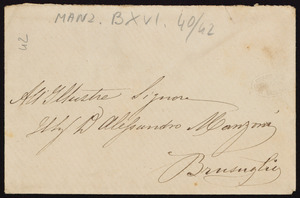 MANZ. B XVI. 40/42
42
All'Illustre Signore
D Alessandro Manzoni
Brusuglio